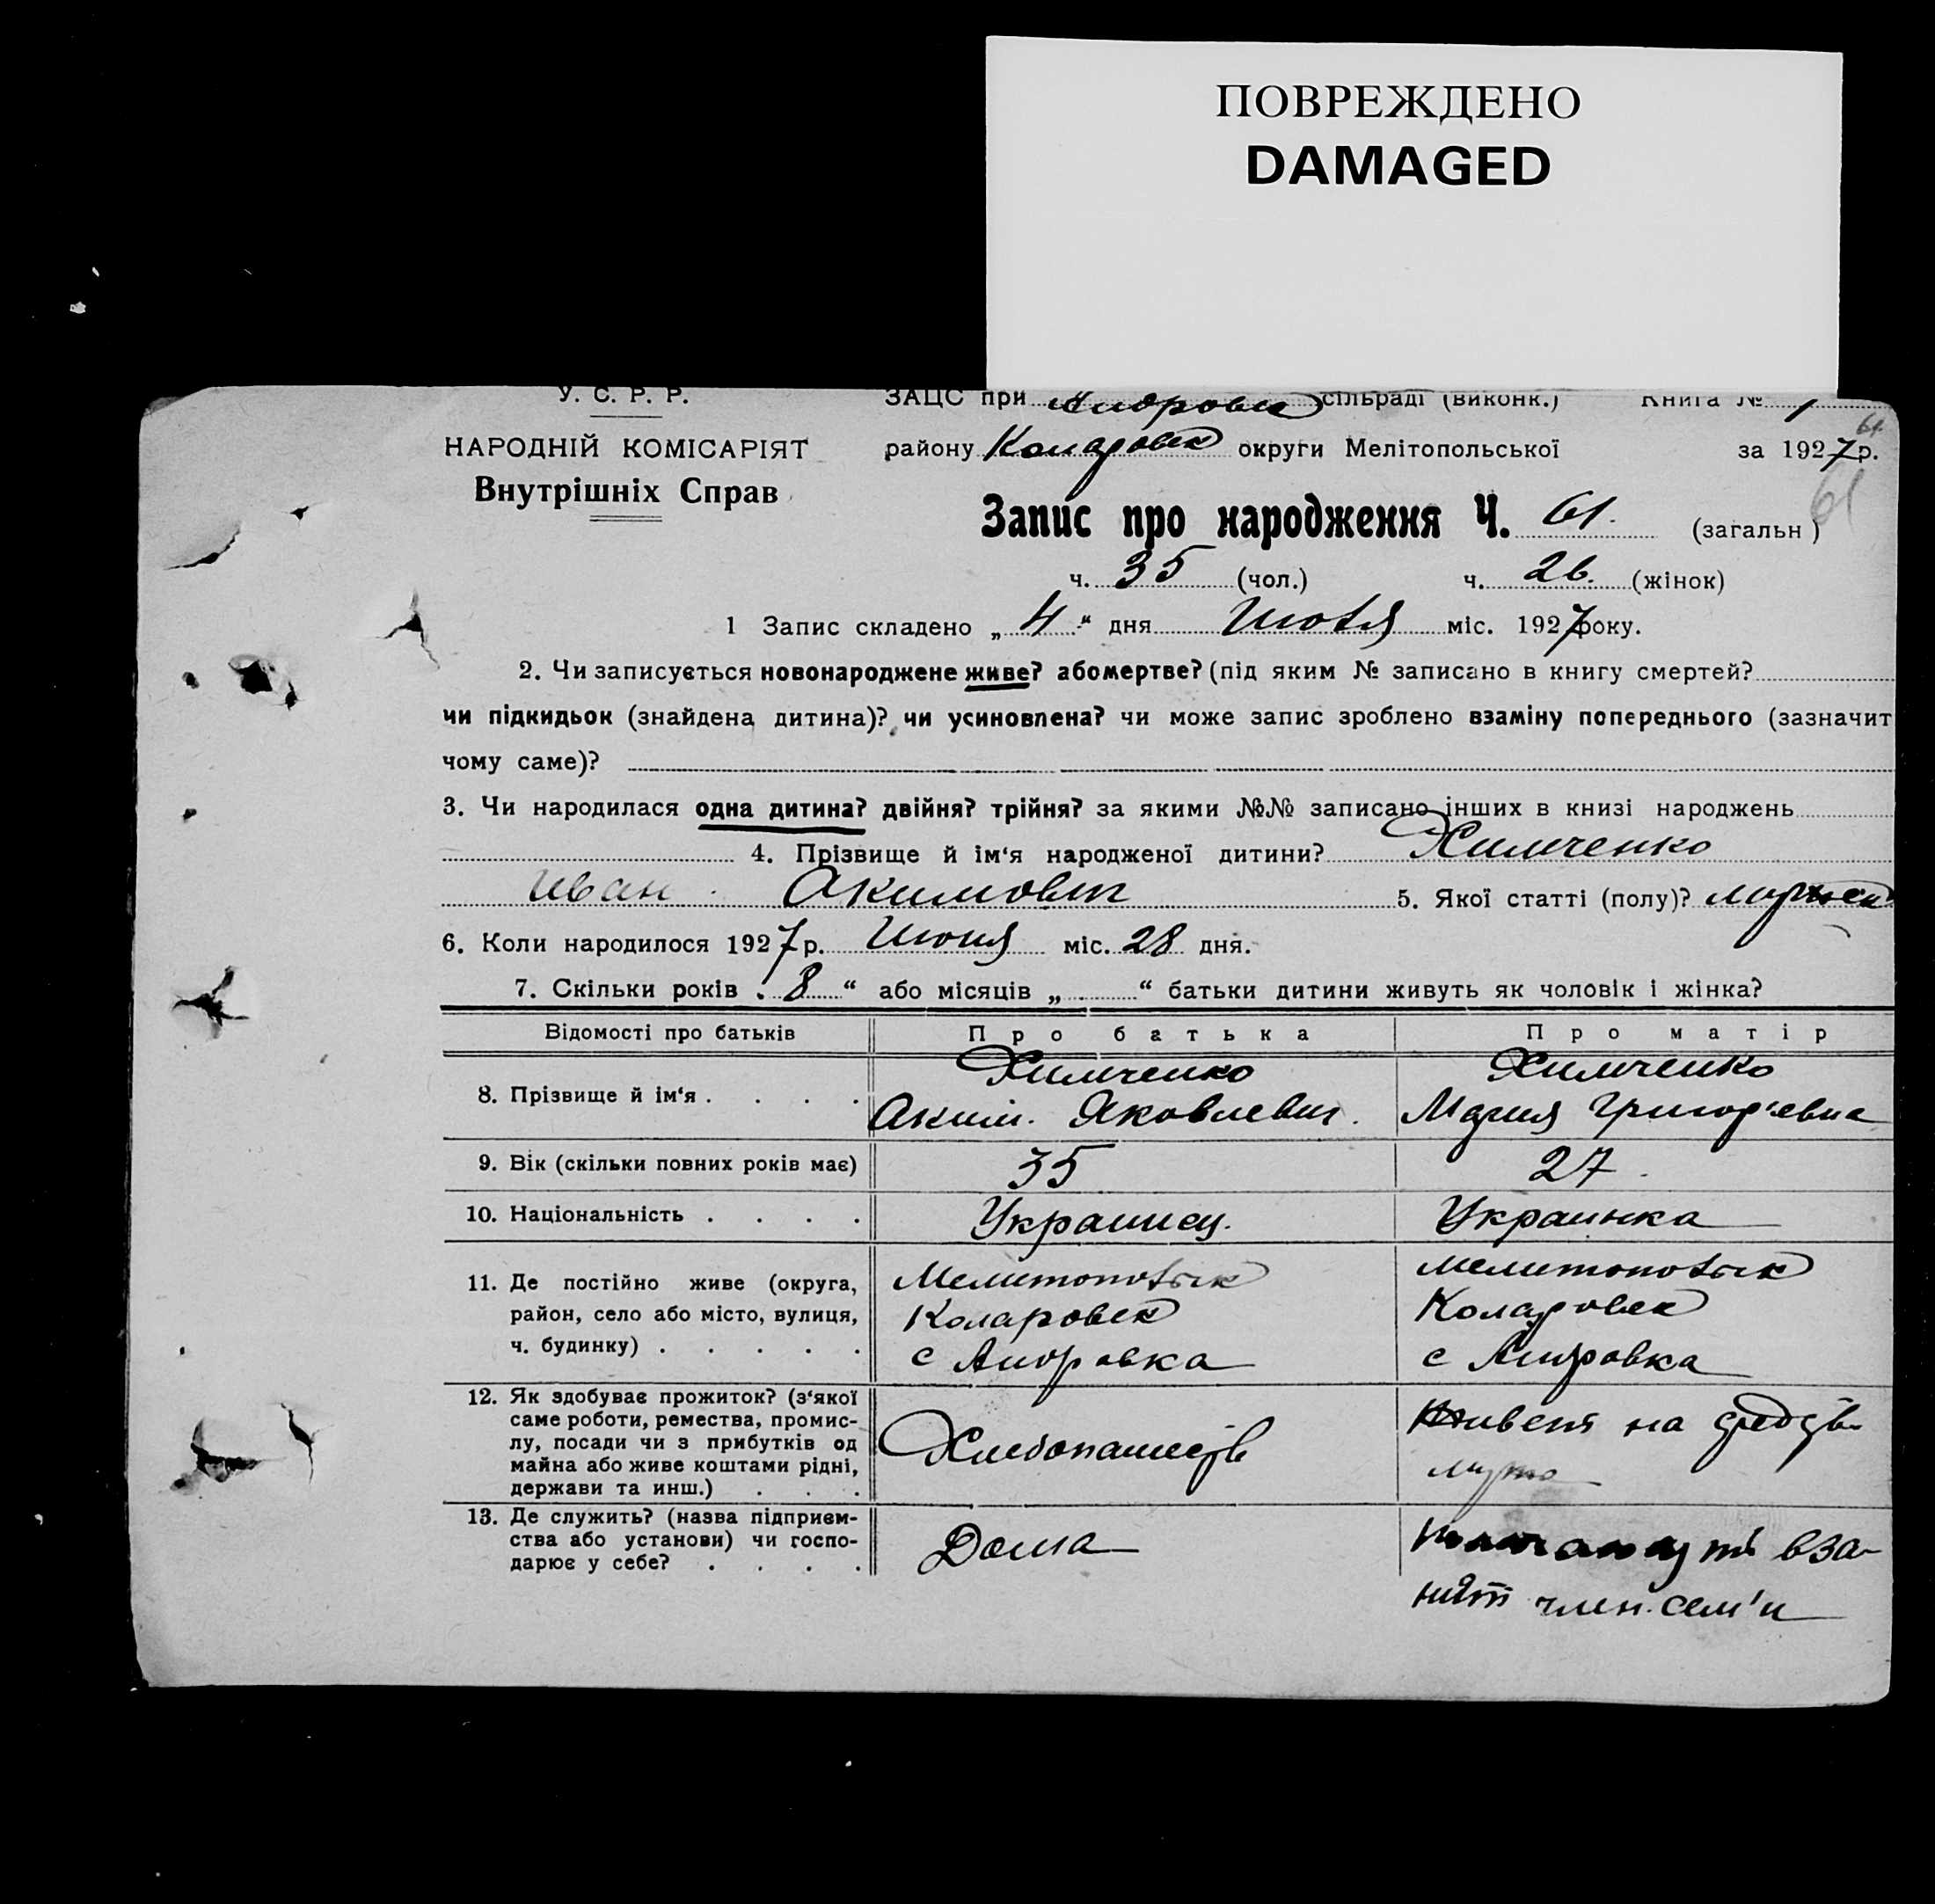 ПОВРЕЖДЕНО
DAMAGED
У. С. Р. Р.
ЗАЦС при Андровск сільраді (виконк.) Книга № 1
61
НАРОДНІЙ КОМІСАРІЯТ
району Коларовск округи Мелітопольської за 1927 р.
Внутрішніх Справ
61
Запис про народження Ч. 61. (загальн )
ч. 35 (чол.) ч. 26. (жінок)
1 Запис складено „ 4 “ дня Июля міс. 1927 року.
2. Чи записується новонароджене живе? або мертве? (під яким № записано в книгу смертей?
чи підкидьок (знайдена дитина)? чи усиновлена? чи може запис зроблено взаміну попереднього (зазначит
чому саме)?
3. Чи народилася одна дитина? двійня? трійня? за якими №№ записано інших в книзі народжень
4. Прізвище й ім‘я народженої дитини? Химченко
Иван Акимович 5. Якої статті (полу)? мужск
6. Коли народилося 1927 р. Июня міс. 28 дня.
7. Скільки років „ 8 “ або місяців „ “ батьки дитини живуть як чоловік і жінка?
Відомості про батьків Про батька Про матір
8. Прізвище й ім‘я . . . .
Химченко
Аким. Яковлевич.
Химченко
Мария Григор'евна
9. Вік (скільки повних років має) 35 27.
10. Національність . . . . Украинец. Украинка
11. Де постійно живе (округа,
район, село або місто, вулиця,
ч. будинку) . . . . .
Мелитопольск
Коларовск
с Андровка
Мелитопольск
Коларовск
с Андровка
12. Як здобуває прожиток? (з‘якої
саме роботи, ремества, промис-
лу, посади чи з прибутків од
майна або живе коштами рідні,
держави та инш.) . . .
Хлебопашеств
живет на средств
мужа
13. Де служить? (назва підприєм-
ства або установи) чи госпо-
дарює у себе? . . . .
Дома
вза-
член. сем'и